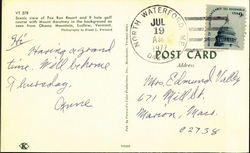 VT 578
Scenic view of Fox Run Resort and 9 hole golf
course with Mount Ascutney in the background as
seen from Okemo Mountain, Ludlow, Vermont.
Hi
Having a grand
time. Will be home
Thursday
Anne
NORTH WATERFORD
JUL
19
AM
1977
POST CARD
Address
Mrs. Edmund
671 Mill St.
Marion, Mass.
02738